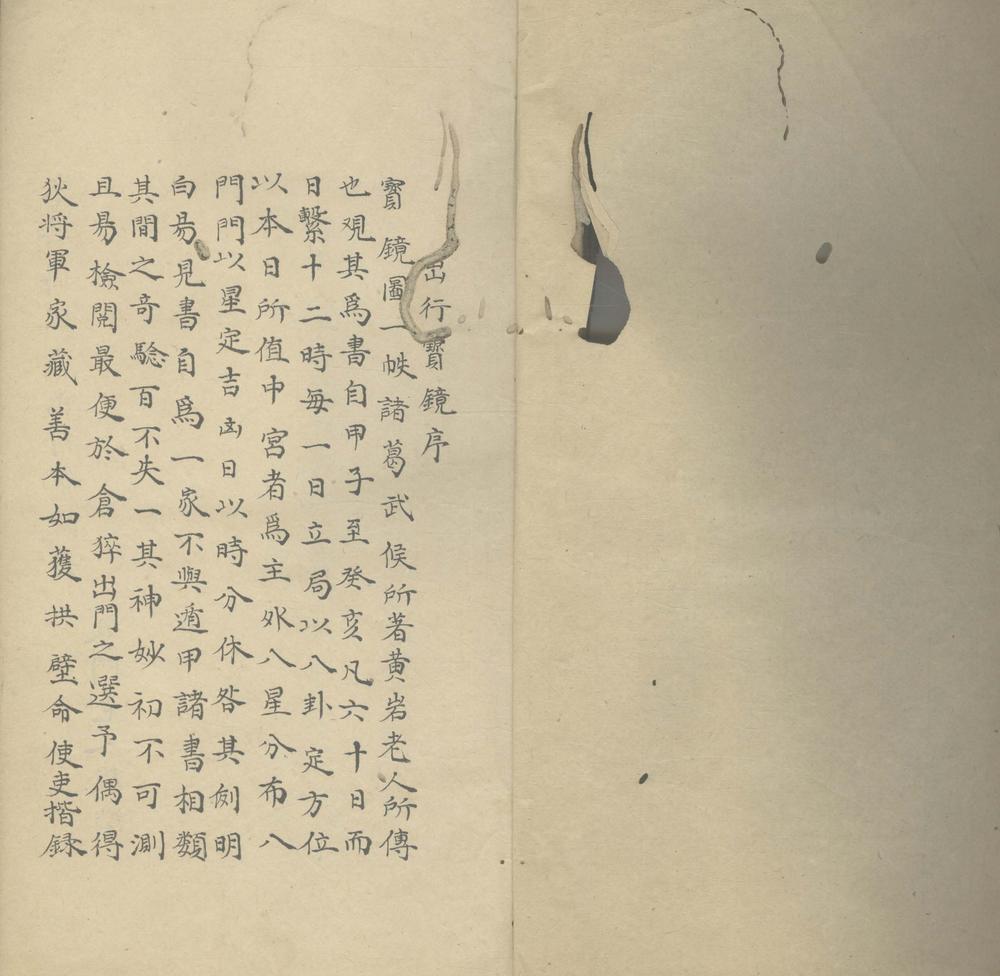 出行寳鏡序
寳鏡圖一帙諸葛武侯所著黄岩老人所傳
也觀其爲書自甲子至癸亥凡六十日而
日繫十二時每一日立局以八卦定方位
以本日所值中宫者爲主外八星分布八
門門以星定吉凶日以時分休咎其例明
白易見書自爲一家不與遁甲諸書相類
其間之奇騐百不失一其神妙初不可測
且易檢閲最便於倉猝出門之選予偶得
狄将軍家藏善本如獲拱璧命使吏揩録